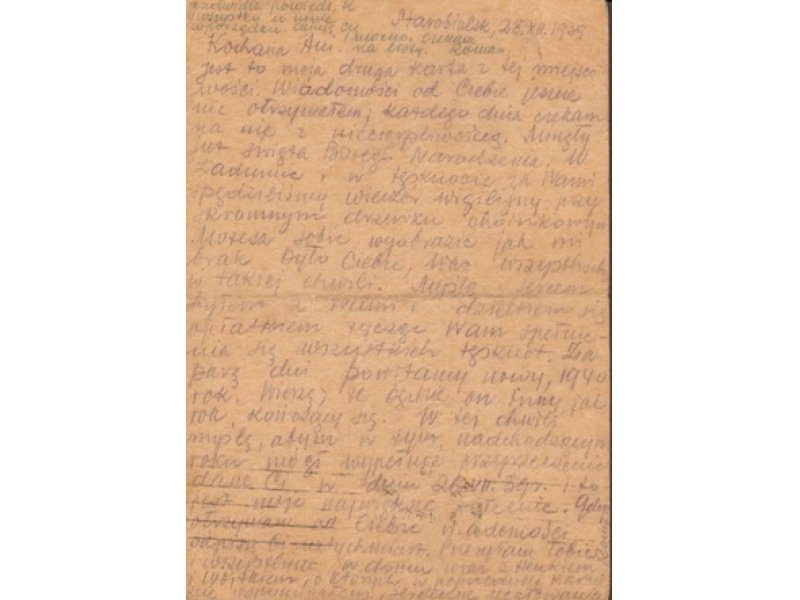 powiedz, że
wszystko u mnie
w porządku. Całuję Cię
i mocno. Czekam
Starobielsk, 28.XII.1939
Kochana na listy. Roman
jest to moja druga karta z tej miejsco
wości. Wiadomości od Ciebie jeszcze
nie otrzymałem, każdego dnia czekam
na nie z niecierpliwością. Minęły
już święta Bożego Narodzenia. W
zadumie i w tęsknocie za Wami
spędziliśmy wieczór wigilijny przy
skromnym drzewku choinkowym
Możesz sobie wyobrazić jak mi
brak było Ciebie, Was wszystkich
w takiej chwili. Myślą i sercem
byłem z Wami i dzieliłem się
opłatkiem życząc Wam spełnie-
nia się wszystkich tęsknot. Za
parę dni powitamy nowy, 1940
rok. Wierzę, że będzie on inny jak
rok kończący się. W tej chwili
myślę, abym w tym nadchodzącym
roku mógł wypełnić przyrzeczenie
dane Ci w dniu 39r. i to
jest moje największe życzenie. Gdy
otrzymam od Ciebie wiadomości
odpiszę Ci natychmiast. Pozdrawiam Ciebie
i wszystkich w domu wraz z Heńkiem
i Wojtkiem, o których w poprzedniej karcie
nie wspomniałem, serdecznie